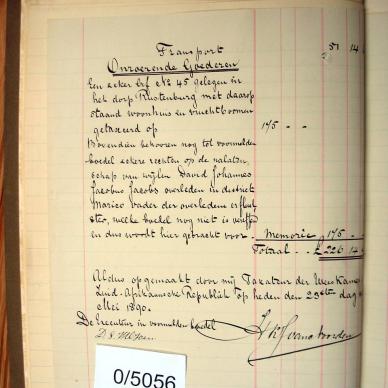 Transport 51 14
Onroerende Goederen
Een zeker Erf No 45 gelegen in
het dorp Rustenburg met daarop
staand woonhuis en vruchtboomen
getaxeerd op 175 - -
Bovendien behooren nog tot voormelden
boedel zekere rechten op de nalaten-
schap van wijlen David Johannes
Jacobus Jacobs overleden in district
Marico vader der overledene
welke boedel nog niet is
en dus wordt hier gebracht voor Memorie 175 - -
Totaal £ 226 14
Aldus opgemaakt door mij Taxateur der Weeskamer
Zuid-Afrikaansche Republiek op heden den 23ste dag
Mei 1890.
De Executeur in voormelden boedel
0/5056